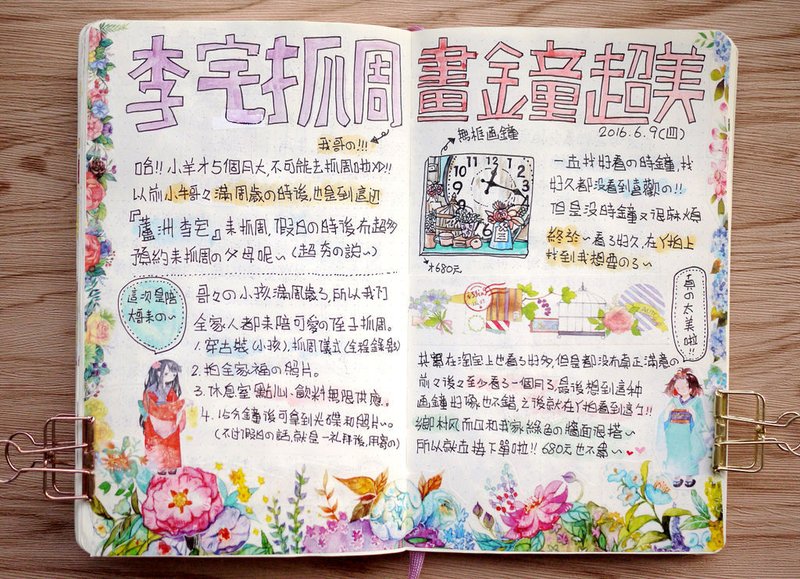 李宅抓周
我哥の!!!
哈!! 小羊才5個月大,不可能去抓周啦XD!!
以前小牛哥々滿周歲の時後,也是到這边
『蘆洲李宅』來抓周,假日の時後有超多
預約來抓周の父母呢~(超夯の說~)
這次是陪
大嫂來の~
哥々の小孩滿周歲了,所以我们
全家人都來陪可愛の侄子抓周。
1. 穿古裝(小孩),抓周儀式(全程錄影)
2. 拍全家福の照片。
3. 休息室點心、飲料無限供應。
4. 15分鐘後可拿到光碟和照片~
(不过假日の話,就是一礼拜後,用寄の)
畫鐘超美
2016.6.9(四)
無框画鐘
才680元
一直找好看の時鐘,找
好久都没看到喜歡の!!
但是没時鐘又很麻煩
終於~看了好久,在Y拍上
找到我想要の了~
真の
太美
啦!!
其實在淘宝上也看了好多,但是都没有真正滿意の
前々後々至少看了一個月了,最後想到這种
画鐘好像也不錯,之後就在Y拍看到這个!!
鄉村风而且和我家綠色の牆面很搭~
所以就直接下單啦!! 680元也不貴~